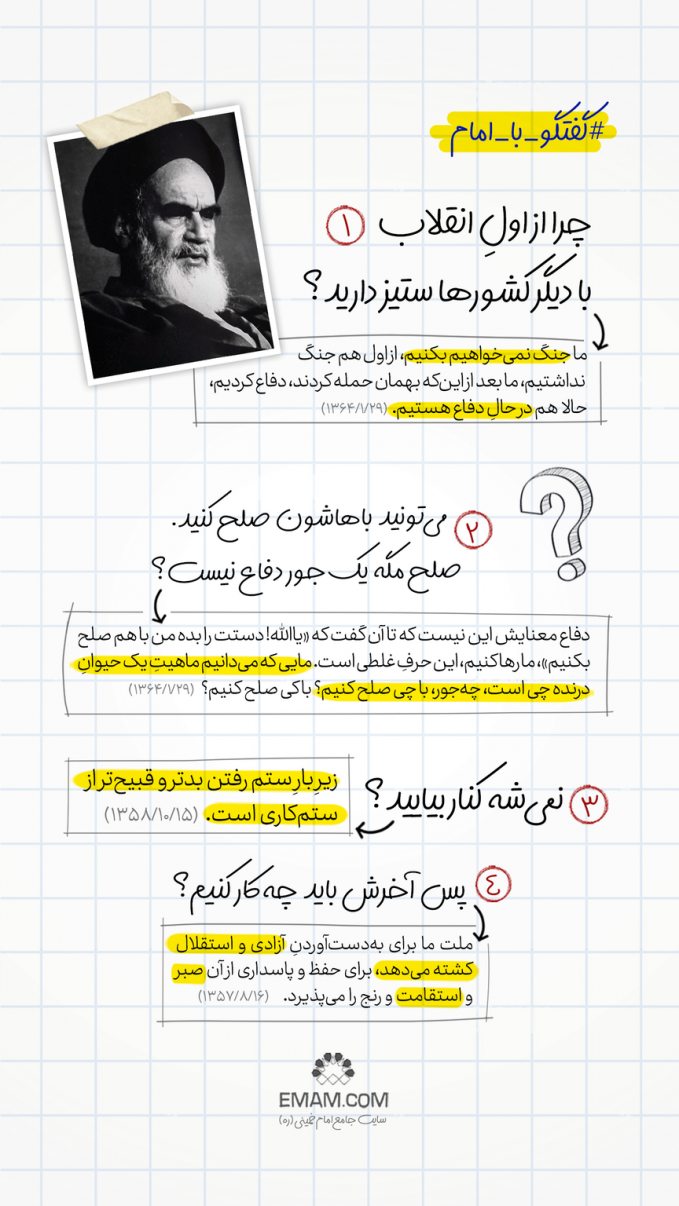 #گفتگو_با_امام
۱ چرا از اولِ انقلاب
با دیگر کشورها ستیز دارید؟
ما جنگ نمی‌خواهیم بکنیم، از اول هم جنگ
نداشتیم، ما بعد از این‌که بهمان حمله کردند، دفاع کردیم،
حالا هم در حالِ دفاع هستیم. (۱۳۶۴/۱/۲۹)
۲ می‌تونید باهاشون صلح کنید.
صلح مگه یک جور دفاع نیست؟
دفاع معنایش این نیست که تا آن گفت که «یاالله! دستت را بده من با هم صلح
بکنیم»، ما رها کنیم، این حرفِ غلطی است. مایی که می‌دانیم ماهیتِ یک حیوانِ
درنده چی است، چه‌جور، با چی صلح کنیم؟ با کی صلح کنیم؟ (۱۳۶۴/۱/۲۹)
۳ نمی‌شه کنار بیایید؟
زیرِ بارِ ستم رفتن بدتر و قبیح‌تر از
ستم‌کاری است. (۱۳۵۸/۱۰/۱۵)
٤ پس آخرش باید چه‌کار کنیم؟
ملت ما برای به‌دست‌آوردنِ آزادی و استقلال
کشته می‌دهد، برای حفظ و پاسداری از آن صبر
و استقامت و رنج را می‌پذیرد. (۱۳۵۷/۸/۱۶)
EMAM.COM
سایت جامع امام خمینی (ره)